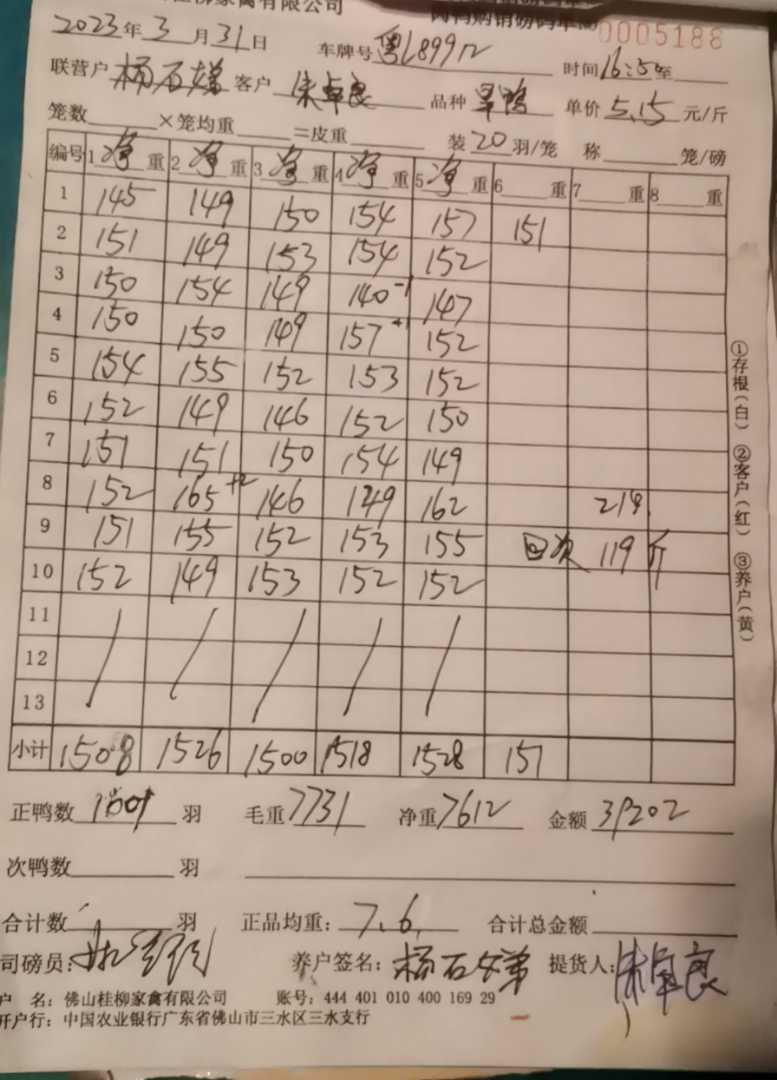 桂柳家禽有限公司
肉鸭购销磅码单
0005188
2023年3月31日 车牌号粤L899 时间16:50至
联营户 杨石娣 客户 朱卓良 品种 单价5.15元/斤
笼数 ×笼均重 =皮重 装20羽/笼 称 笼/磅
编号 1净重 2净重 3净重 4净重 5净重 6 重 7 重 8 重
1 145 149 150 154 157 151
2 151 149 153 154 152
3 150 154 149 140-1 147
4 150 150 149 157+1 152
5 154 155 152 153 152
6 152 149 146 152 150
7 151 151 150 154 149
8 152 165+2 146 149 162 21只
9 151 155 152 153 155 回次 119斤
10 152 149 153 152 152
11
12
13
小计 1508 1526 1500 1518 1528 151
正鸭数1001羽 毛重7731 净重7612 金额39202
次鸭数 羽
合计数 羽 正品均重:7.6 合计总金额
司磅员: 养户签名:杨石娣 提货人:朱卓良
户 名:佛山桂柳家禽有限公司 账号:444 401 010 400 169 29
开户行:中国农业银行广东省佛山市三水区三水支行
①存根(白) ②客户(红) ③养户(黄)